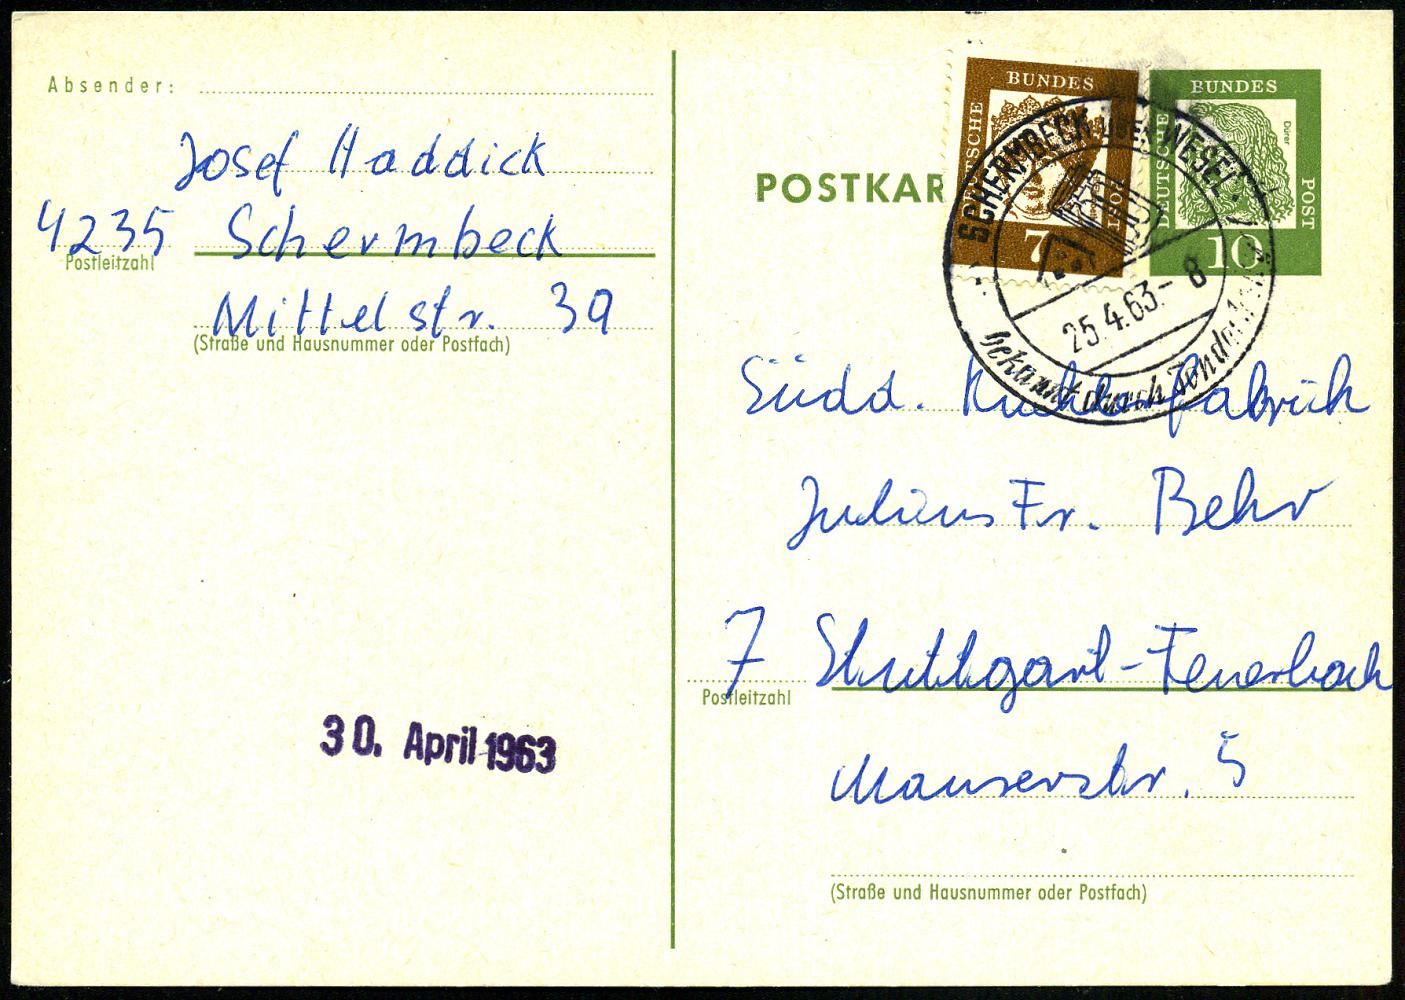 Absender:
Josef Haddick
4235 Schermbeck
Postleitzahl
Mittelstr. 39
(Straße und Hausnummer oder Postfach)
30. April 1963
POSTKAR
BUNDES
DEUTSCHE
POST
7
BUNDES
DEUTSCHE
POST
Dürer
10
SCHERMBECK über WESEL
25.4.63.- 8
bekannt durch
Südd. Kuchlerfabrik
Julius Fr. Behr
7 Stuttgart-Feuerbach
Postleitzahl
Mauserstr. 5
(Straße und Hausnummer oder Postfach)